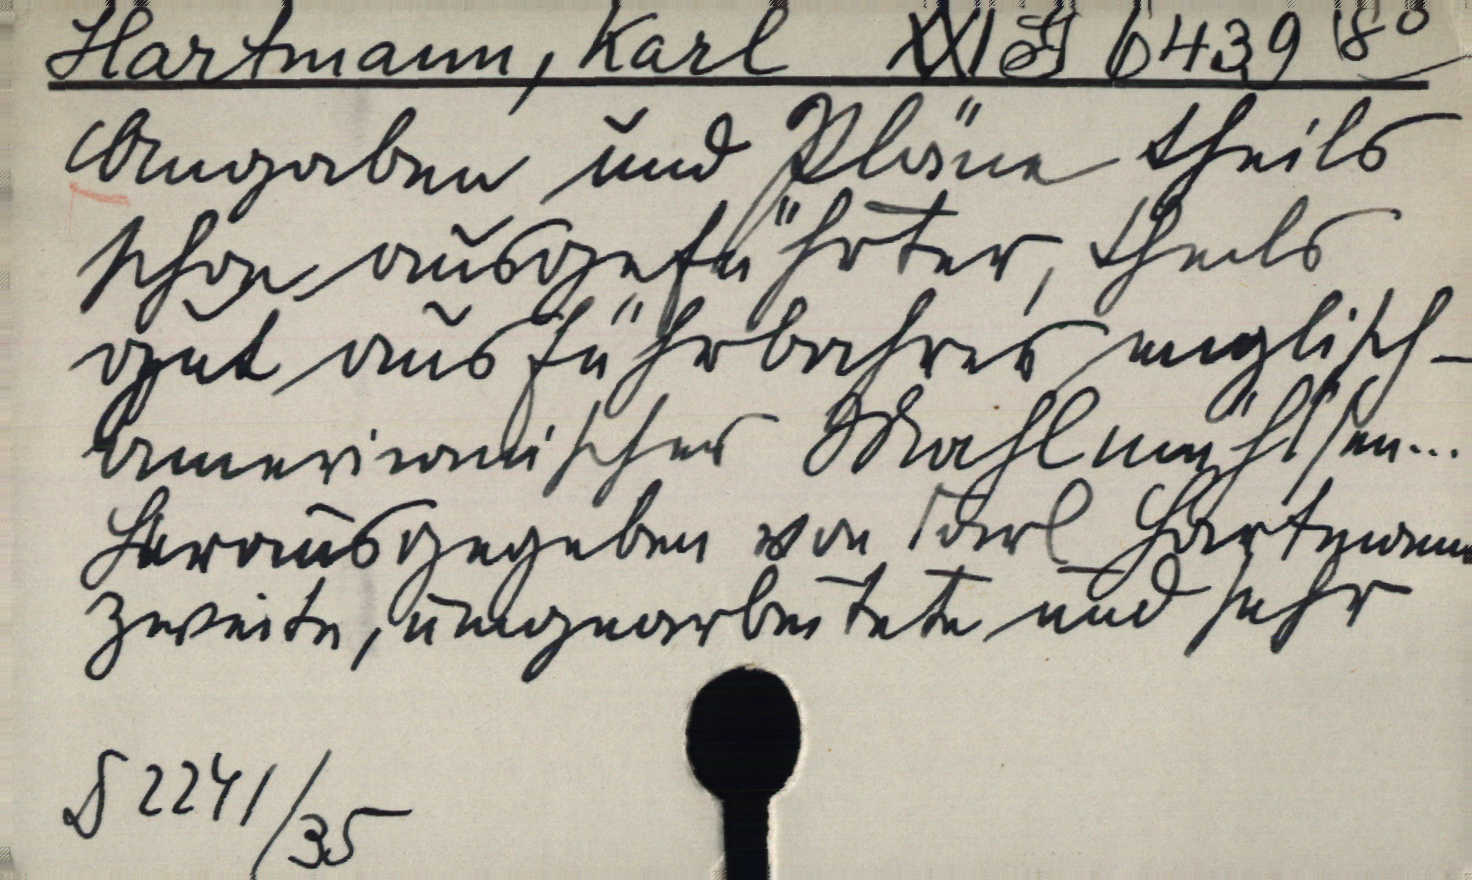 Hartmann, Karl XXI J 6439 8o
Angaben und Pläne theils
schon ausgeführter, theils
gut ausführbahrer englisch-
americanischer Mahlmühlen...
Herausgegeben von Karl Hartmann
Zweite, umgearbeitete und sehr
2241/35